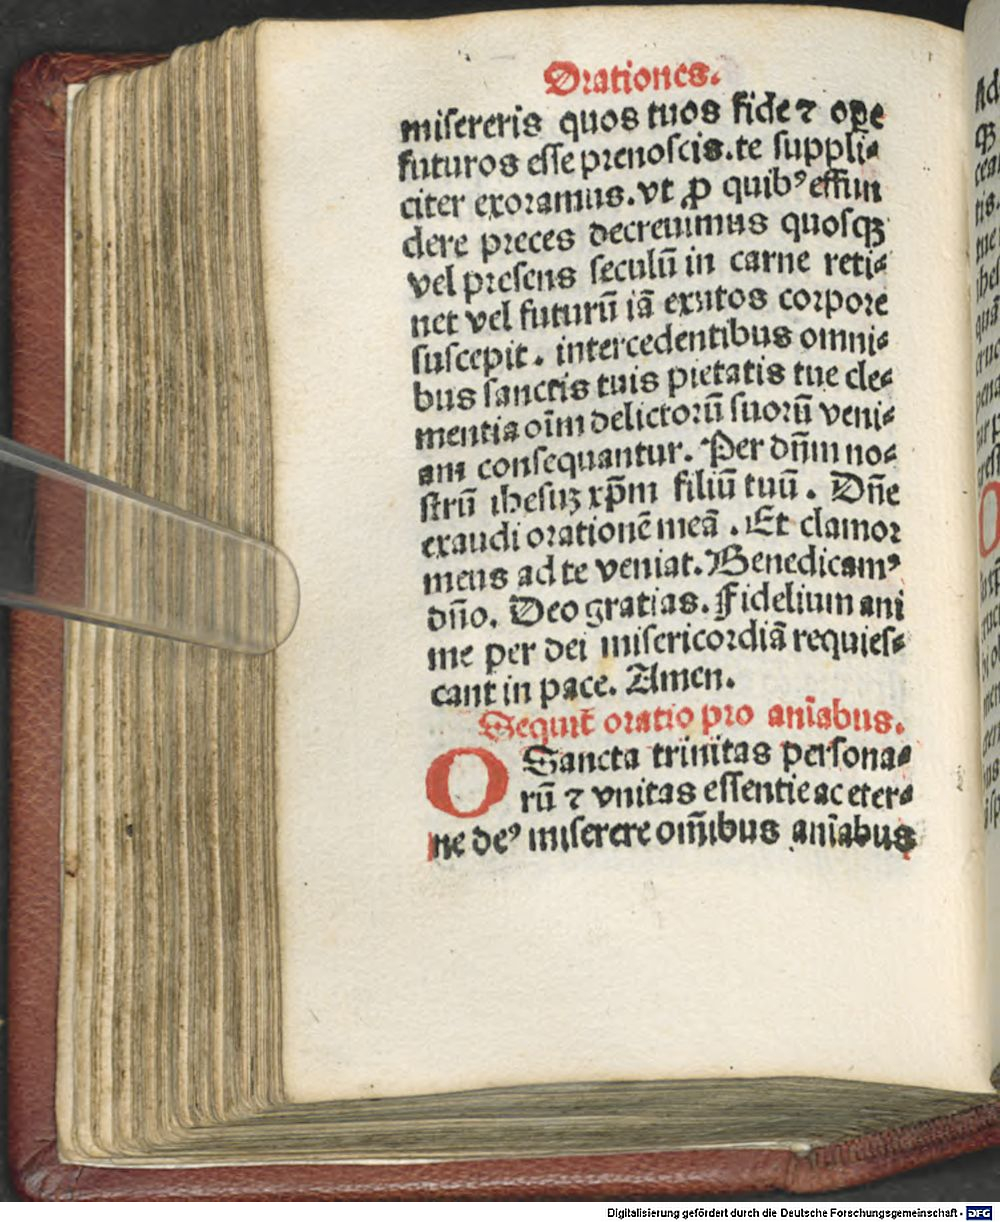 Orationes.
misereris quos tuos fide ⁊ ope
futuros esse prenoscis. te suppli⸗
citer exoramus. vt ꝓ quibꝰ effun
dere preces decreuimus quosqꝫ
vel presens seculū in carne reti⸗
net vel futurū iā exutos corpore
suscepit. intercedentibus omni⸗
bus sanctis tuis pietatis tue cle⸗
mentia oīm delictorū suorū veni⸗
am consequantur. Per dn̄m no⸗
strū ihesuꝫ xp̄m filiū tuū. Dn̄e
exaudi orationē meā. Et clamor
meus ad te veniat. Benedicamꝰ
dn̄o. Deo gratias. Fidelium ani
me per dei misericordiā requies⸗
cant in pace. Amen.
Sequit̄ oratio pro aniābus.
O Sancta trinitas persona⸗
rū ⁊ vnitas essentie ac eter⸗
ne deꝰ miserere om̄ibus aniābus
Ad
qꝫ
cea
tis.
tue
ihes
quā
cruc
pena
tur p
cres
O
Digitalisierung gefördert durch die Deutsche Forschungsgemeinschaft - DFG